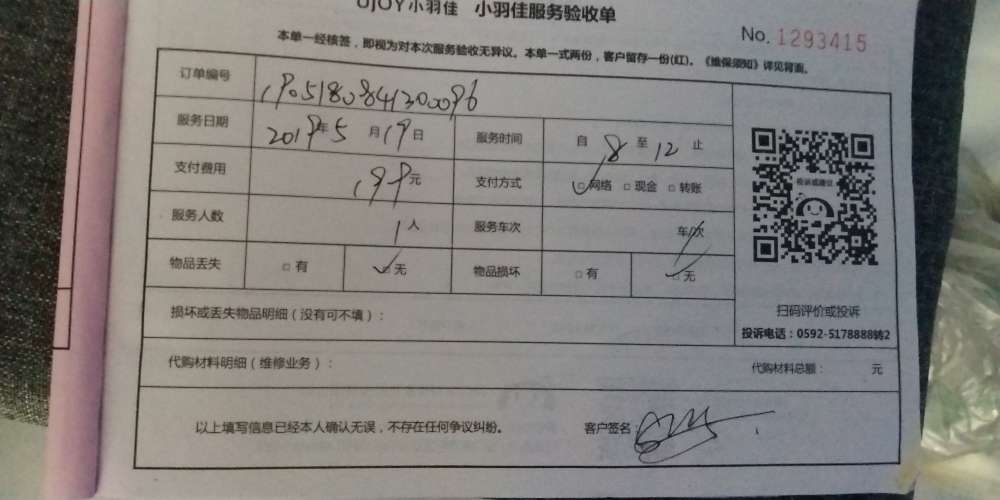 UJOY小羽佳 小羽佳服务验收单
No. 1293415
本单一经核签，即视为对本次服务验收无异议。本单一式两份，客户留存一份(红)。《维保须知》详见背面。
订单编号 190518084130096
服务日期 2019年5月19日 服务时间 自8至12止
支付费用 199元 支付方式 ☑网络 □现金 □转账
服务人数 1人 服务车次 车/次
物品丢失 □有 ☑无 物品损坏 □有 ☑无
投诉或建议
扫码评价或投诉
投诉电话：0592-5178888转2
损坏或丢失物品明细（没有可不填）：
代购材料明细（维修业务）： 代购材料总额： 元
以上填写信息已经本人确认无误，不存在任何争议纠纷。 客户签名